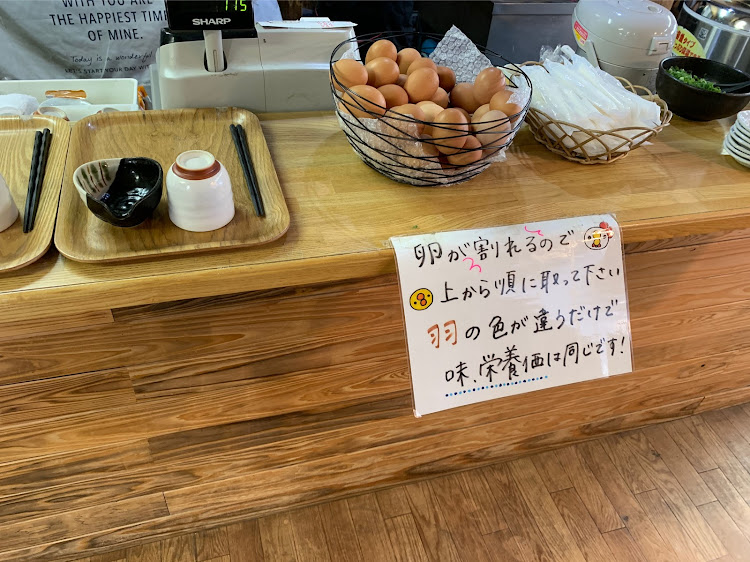 WITH YOU ARE
THE HAPPIEST TIME
OF MINE.
Today is a wonderful
LET'S START YOUR DAY WITH
SHARP
115
卵が割れるので
上から順に取って下さい
羽の色が違うだけで
味、栄養価は同じです!